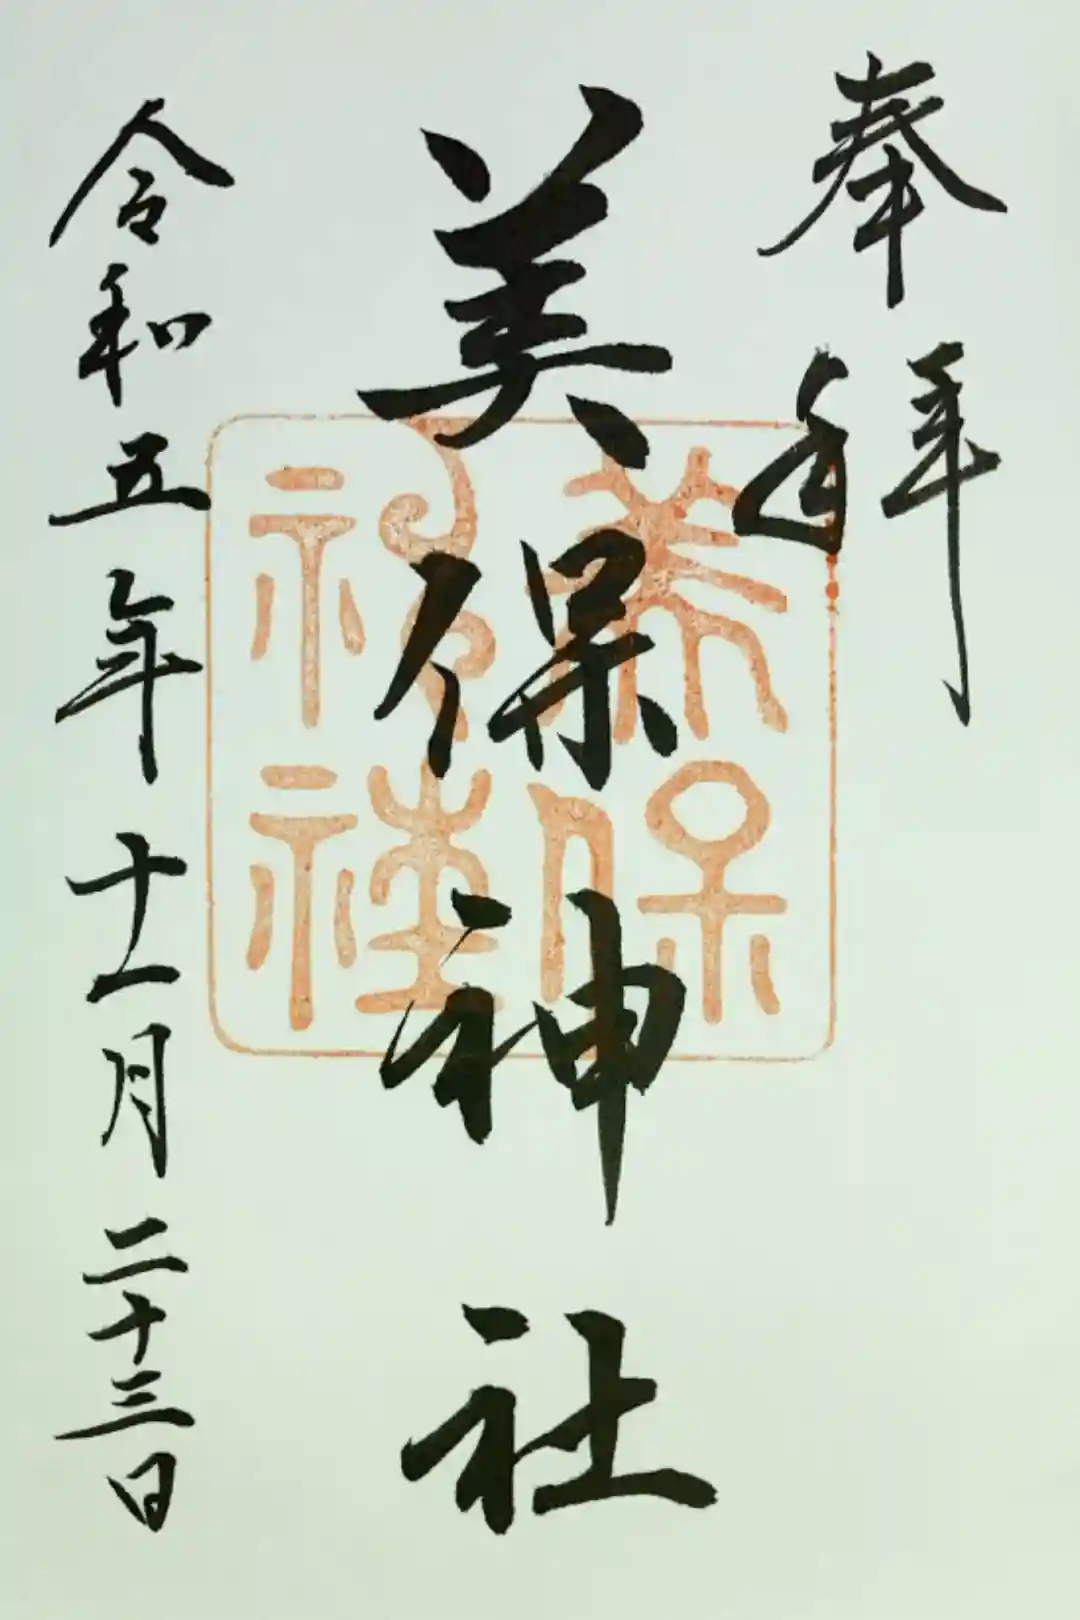 奉拝
美保神社
美保神社
令和五年十一月二十三日